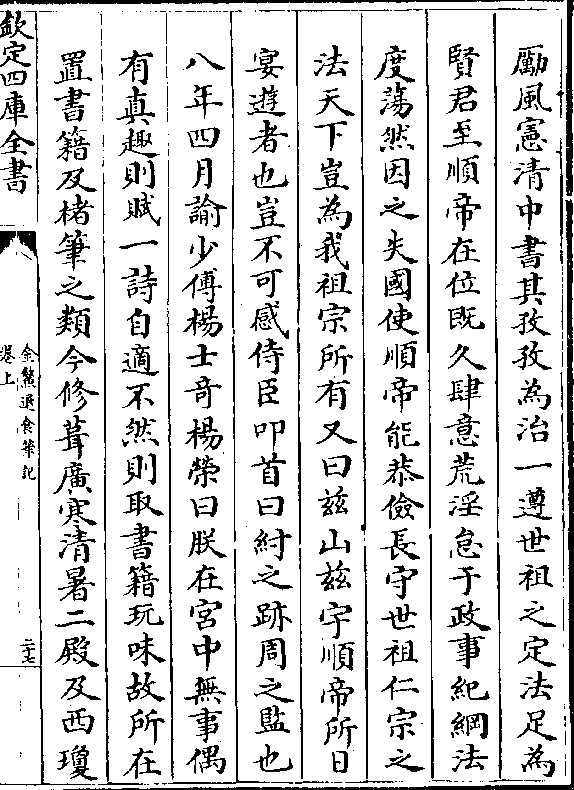 勵風憲清中書其孜孜為治一遵世祖之定法足為
賢君至順帝在位既久肆意荒淫怠于政事紀綱法
度蕩然因之失國使順帝能恭儉長守世祖仁宗之
法天下豈為我祖宗所有又曰兹山兹宇順帝所日
宴遊者也豈不可感侍臣叩首曰紂之跡周之監也
八年四月諭少傅楊士奇楊榮曰朕在宮中無事偶
有真趣則賦一詩自適不然則取書籍玩味故所在
置書籍及楮筆之類今修葺廣寒清暑二殿及西瓊
欽定四庫全書
金鰲退食筆記
卷上
二十七